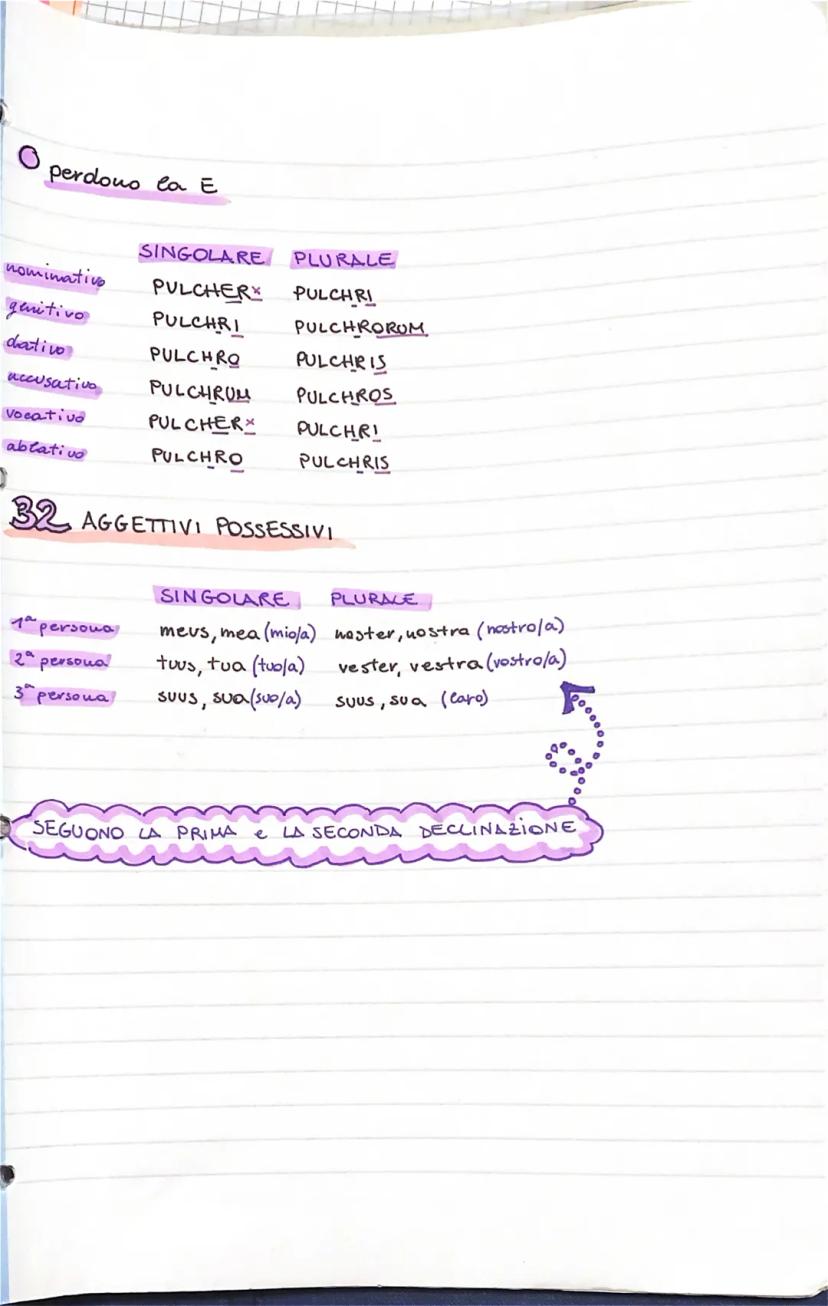 O perdono la E
SINGOLARE PLURALE
nominativo PULCHERˣ PULCHRI
genitivo PULCHRI PULCHRORUM
dativo PULCHRO PULCHRIS
accusativo PULCHRUM PULCHROS
vocativo PULCHERˣ PULCHRI
ablativo PULCHRO PULCHRIS
32 AGGETTIVI POSSESSIVI
SINGOLARE PLURALE
1ª persona meus, mea (mio/a) noster, nostra (nostro/a)
2ª persona tuus, tua (tuo/a) vester, vestra (vostro/a)
3ª persona suus, sua (suo/a) suus, sua (loro)
SEGUONO LA PRIMA e LA SECONDA DECLINAZIONE